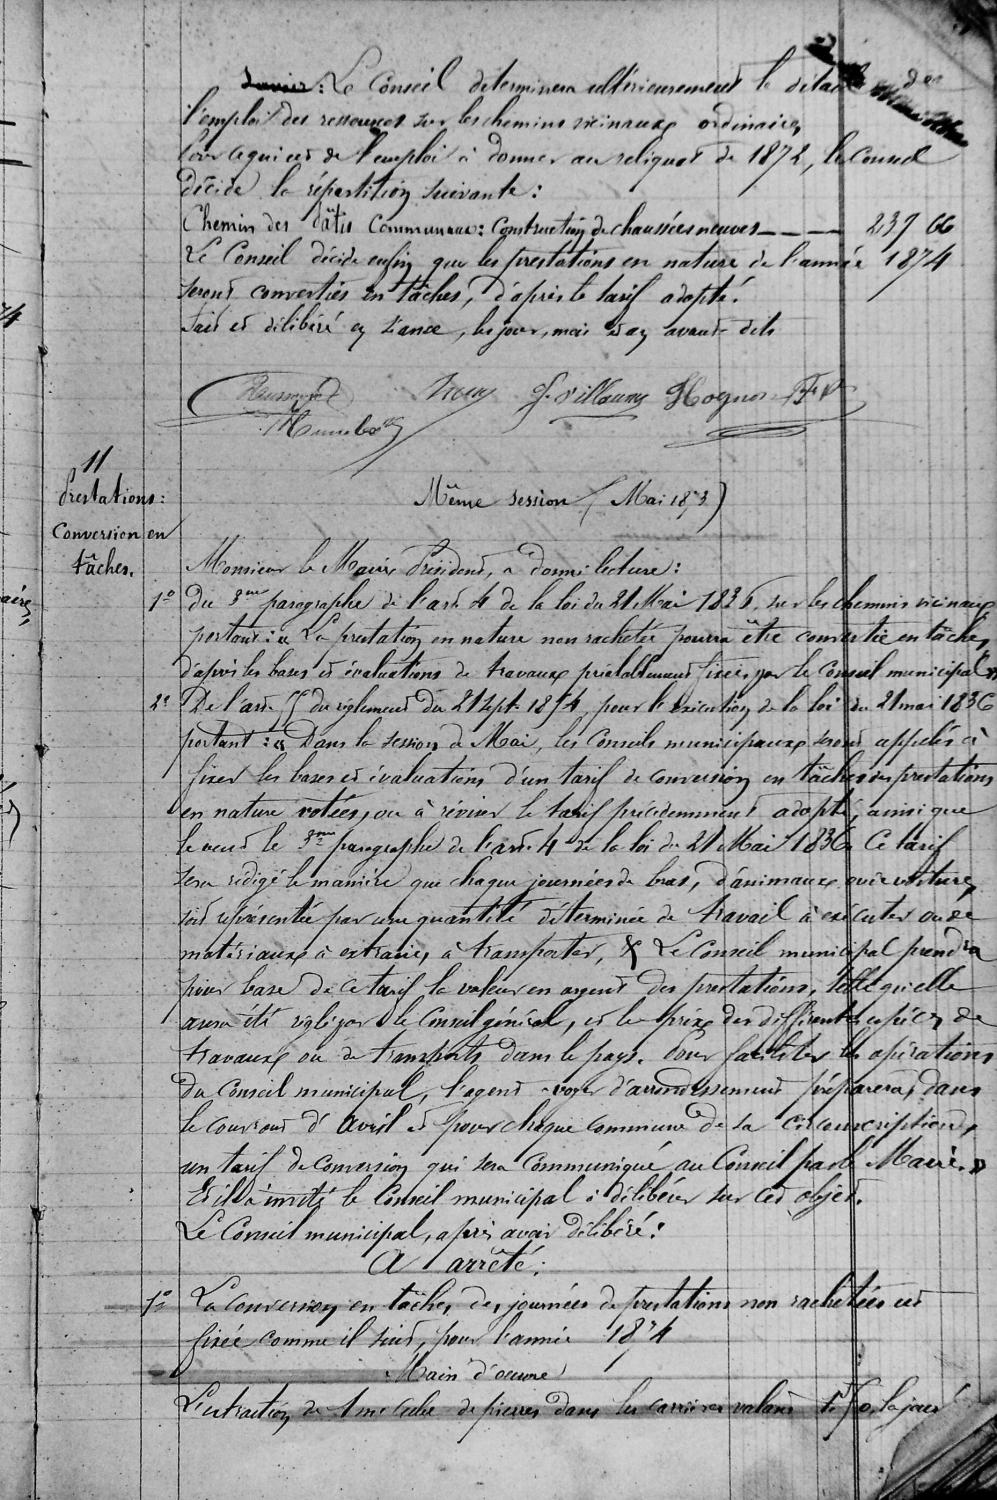 Le Conseil déterminera ultérieurement le détail de
l'emploi des ressources sur les chemins vicinaux ordinaires
Pour ce qui est de l'emploi à donner au reliquat de 1872, le Conseil
décide la répartition suivante :
Chemin des Communaux : Construction de chaussées neuves — — — 237 66
Le Conseil décide enfin que les prestations en nature de l'année 1874
seront converties en tâches, d'après le tarif adopté.
Fait et délibéré en séance, les jour, mois et an avant dits
11
Prestations :
Conversion en
tâches.
Même session (Mai 1873)
Monsieur le Maire Président, a donné lecture :
1° Du 3me paragraphe de l'art. 4 de la loi du 21 Mai 1836, sur les chemins vicinaux,
portant : « La prestation en nature non rachetée pourra être convertie en tâches,
d'après les bases et évaluations de travaux préalablement fixées par le Conseil municipal »
2° De l'art. du règlement du 21 Sept. 1854, pour l'exécution de la loi du 21 mai 1836
portant : « Dans la session de Mai, les Conseils municipaux seront appelés à
fixer les bases et évaluations d'un tarif de conversion en tâches des prestations
en nature votées, ou à réviser le tarif précédemment adopté, ainsi que
le veut le 3me paragraphe de l'art. 4 de la loi du 21 Mai 1836. Ce tarif
sera rédigé de manière que chaque journées de bras, d'animaux ou de voitures,
soit représentée par une quantité déterminée de travail à exécuter ou de
matériaux à extraire, à transporter, & Le Conseil municipal prendra
pour base de ce tarif la valeur en argent des prestations, telle qu'elle
aura été réglée par le Conseil général, et le prix des différentes espèces de
travaux ou de transports dans le pays. Pour faciliter les opérations
du Conseil municipal, l'agent-voyer d'arrondissement préparera, dans
le courant d'Avril et pour chaque commune de sa circonscription,
un tarif de conversion qui sera communiqué au Conseil par le Maire. »
Et il a invité le Conseil municipal à délibérer sur cet objet.
Le Conseil municipal, après avoir délibéré :
A arrêté :
1° La conversion en tâches des journées de prestations non rachetées est
fixée comme il suit, pour l'année 1874
Main d'œuvre
L'extraction de 1 m. cube de pierres dans les carrières valant la jour